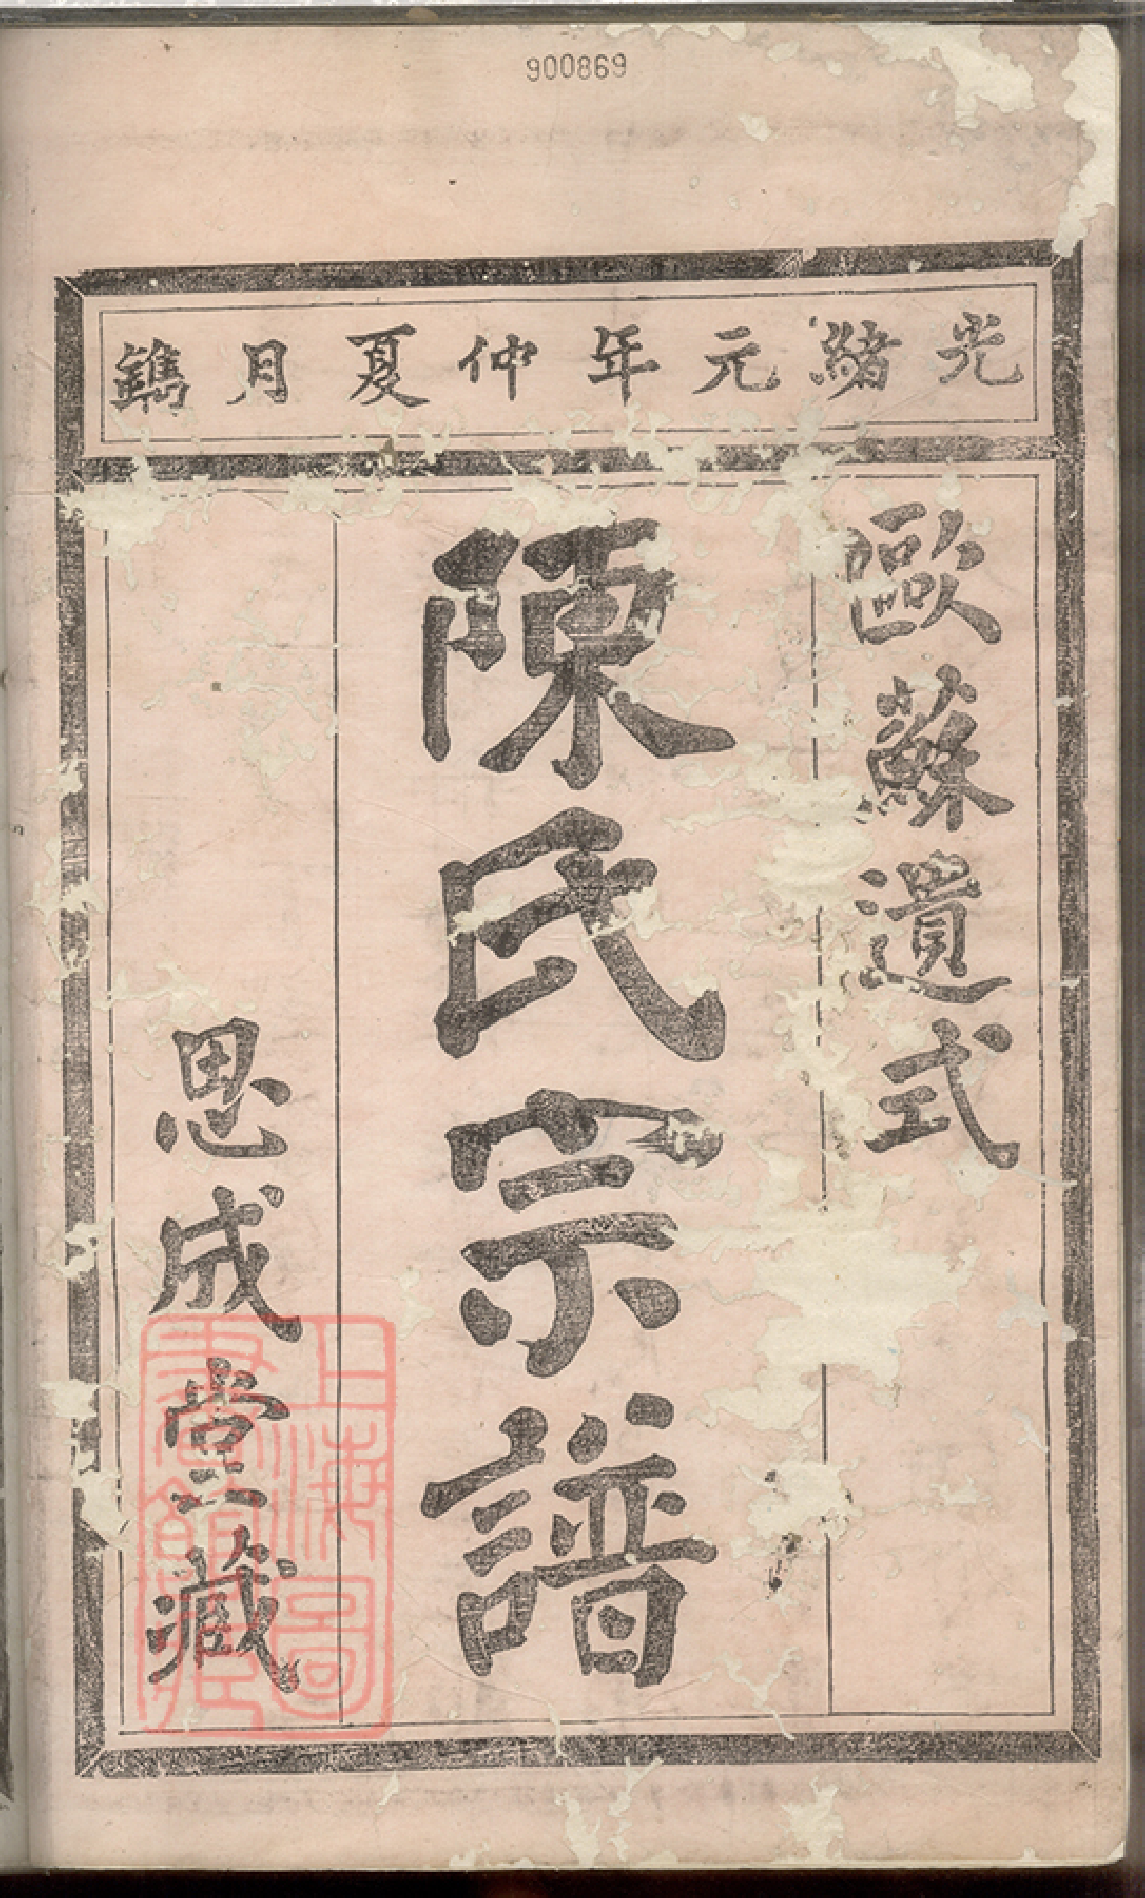 900869
光緒元年仲夏月鐫
歐蘇遺式
陳氏宗譜
思成堂藏
上海圖
書館藏